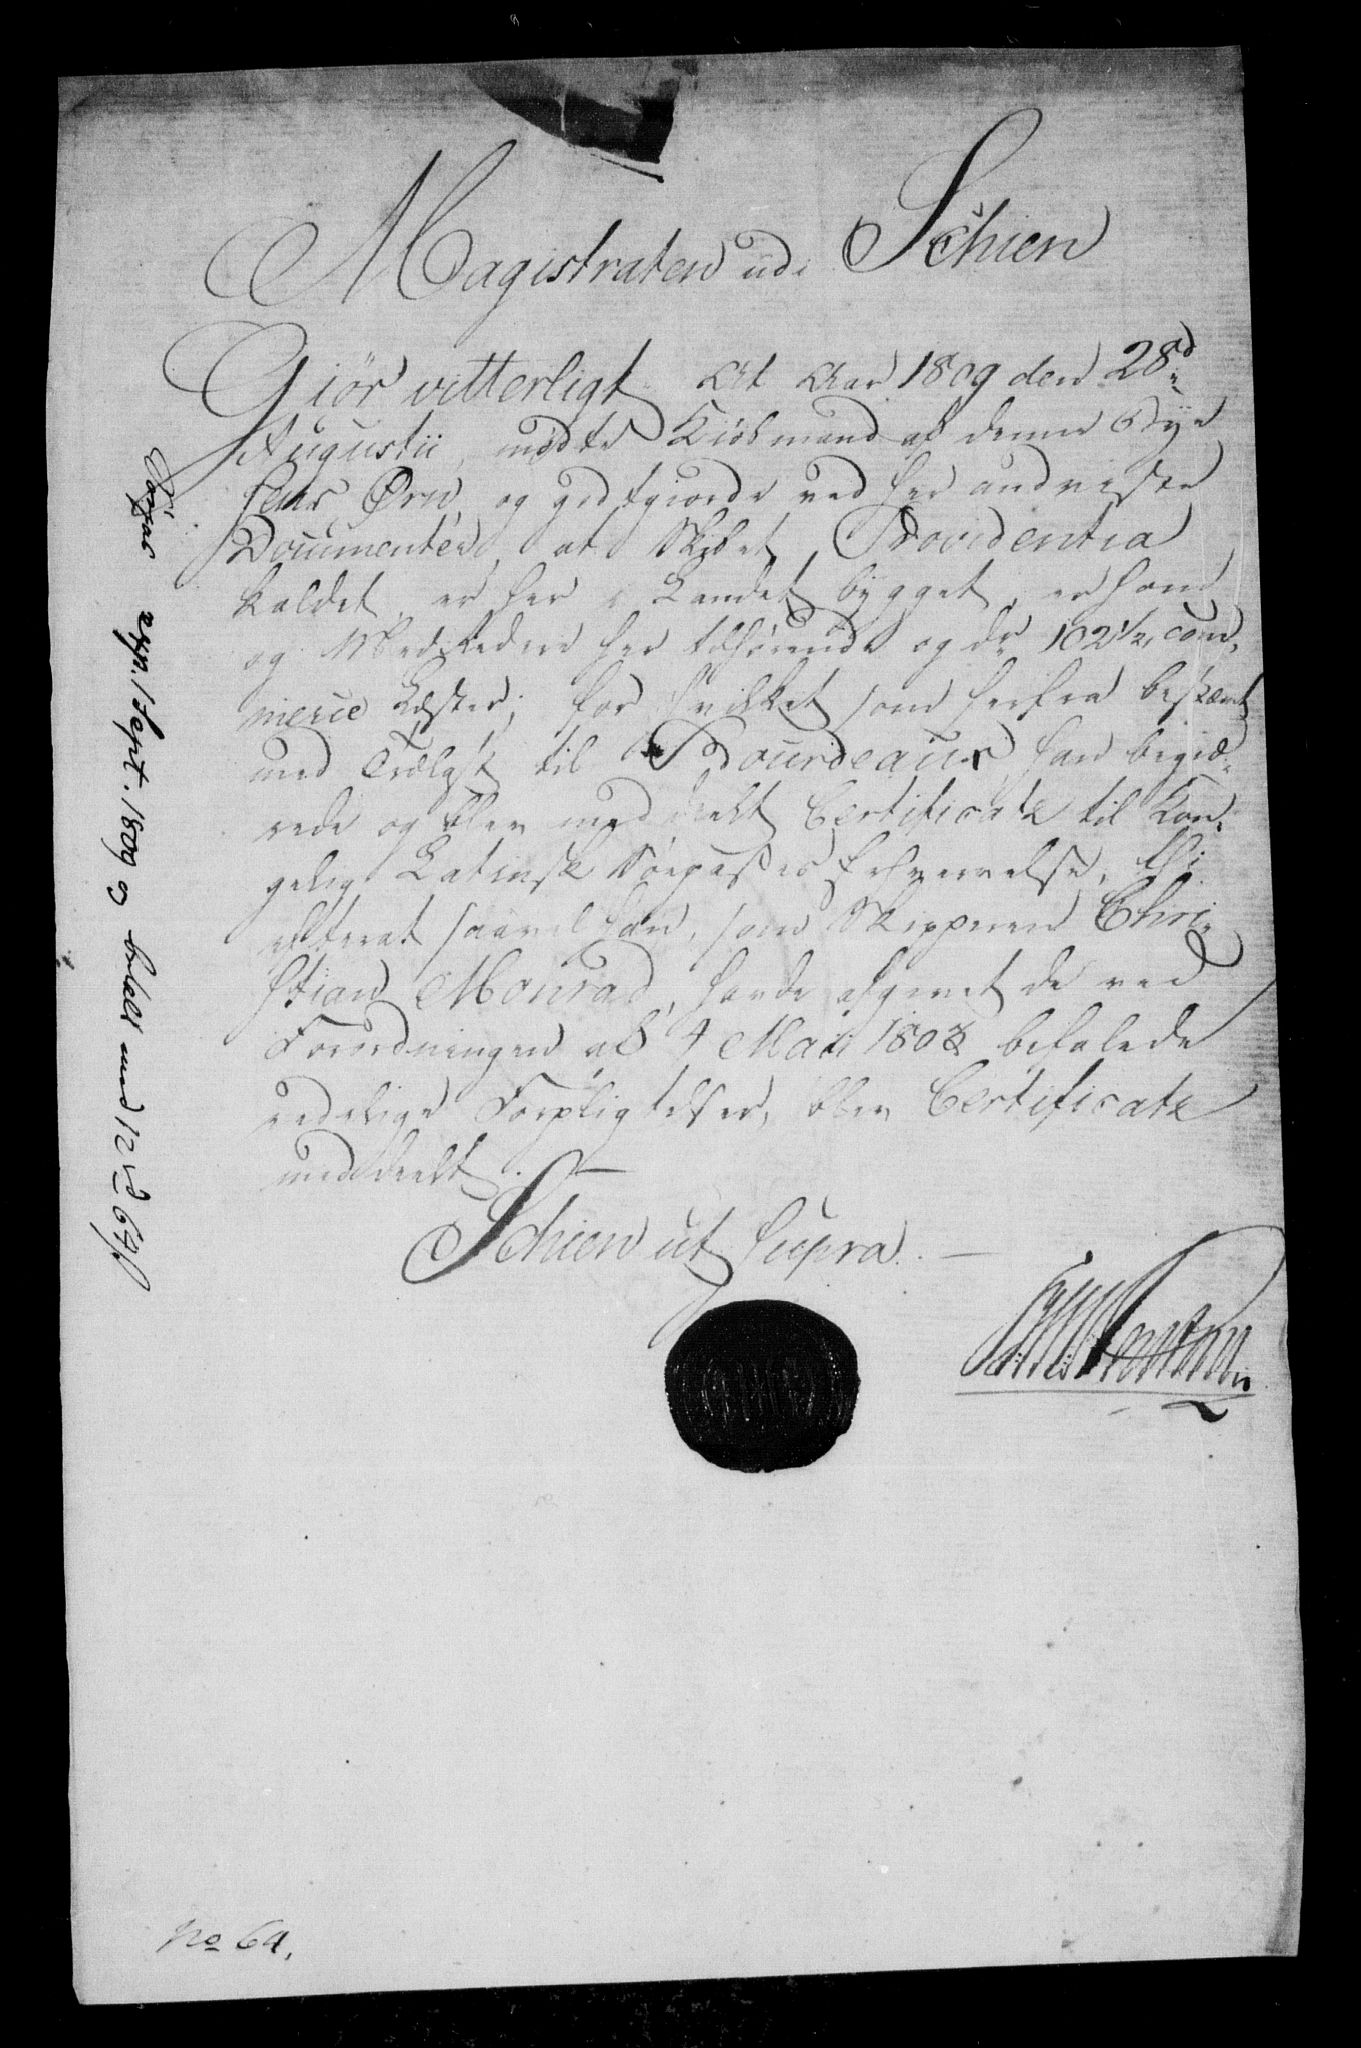 Magistraten udi Schien
Giör vitterligt At Aar 1809 den 28d
Augustii, mödte Kiöbmand af denne Bÿe
Jens Ørn, og godtgiorde ved her andviste
Documenter, at Skibet Providentia
kaldet, er her i Landet bygget, er ham
og Medreedere her tilhørende og dr 102 1/2, com¬
merce Læster; for hvilket som herfra bestemt
med Trælast til Bourdeaux, han begiæ¬
rede og blev meddeelt Certificate til Kon¬
gelig Latinsk Söepasses Erhvervelse, thi
efterat saavel han, som Skipperen Chri¬
stian Monrad, havde afgivet de ved
Forordningen af 4 Maii 1803 befalede
eedelige Forpligtelser, blev Certificate
meddeelt. —
Schien ut supra. —
Söepas exp. 1 Sept. 1809 og betalt med 12 rd 64 s
No 64.